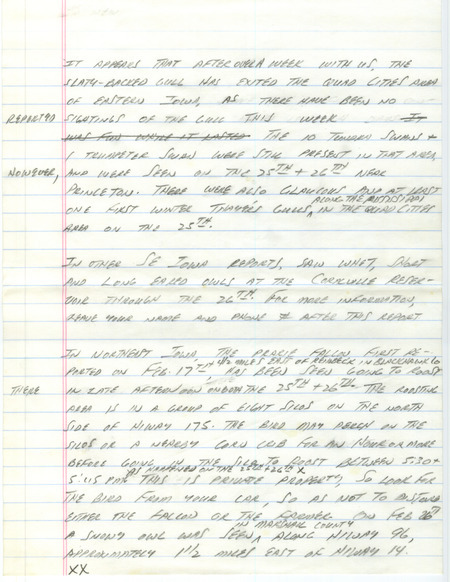 IT APPEARS THAT AFTER OVER A WEEK WITH US, THE
SLATY-BACKED GULL HAS EXITED THE QUAD CITIES AREA
OF EASTERN IOWA, AS THERE HAVE BEEN NO
REPORTED SIGHTINGS OF THE GULL THIS WEEK IT
WAS FUN WHILE IT LASTED. THE 10 TUNDRA SWANS +
1 TRUMPETER SWAN WERE STILL PRESENT IN THAT AREA,
HOWEVER, AND WERE SEEN ON THE 25TH + 26TH NEAR
PRINCETON. THERE WERE ALSO GLAUCOUS AND AT LEAST
ALONG THE MISSISSIPPI
ONE FIRST WINTER THAYER'S GULLS, IN THE QUAD CITIES
AREA ON THE 25TH.
IN OTHER SE IOWA REPORTS, SAW WHET, SHORT
AND LONG EARED OWLS AT THE CORALVILLE RESER-
VOIR THROUGH THE 26TH. FOR MORE INFORMATION,
LEAVE YOUR NAME AND PHONE # AFTER THIS REPORT
IN NORTHEAST IOWA, THE PRAIRIE FALCON FIRST RE-
4 1/2 MILES EAST OF REINBECK IN BLACKHAWK CO
PORTED ON FEB. 17TH HAS BEEN SEEN GOING TO ROOST
THERE IN LATE AFTERNOON ON BOTH THE 25TH + 26TH. THE ROOSTING
AREA IS IN A GROUP OF EIGHT SILOS ON THE NORTH
SIDE OF HIWAY 175. THE BIRD MAY PERCH ON THE
SILOS OR A NEARBY CORN CRIB FOR AN HOUR OR MORE
BEFORE GOING IN THE SILO TO ROOST BETWEEN 5:30 +
AS HAPPENED ON THE 25TH + 26TH X
5:45 PM. THIS IS PRIVATE PROPERTY, SO LOOK FOR
THE BIRD FROM YOUR CAR, SO AS NOT TO DISTURB
EITHER THE FALCON OR THE FARMER. ON FEB 26TH
IN MARSHALL COUNTY
A SNOWY OWL WAS SEEN, ALONG HIWAY 96,
APPROXIMATELY 1 1/2 MILES EAST OF HIWAY 14.
XX